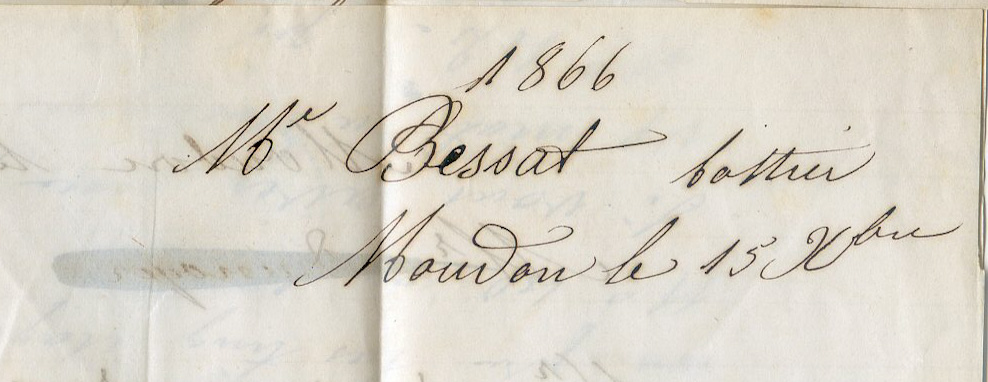 1866
Mr Bessat bottier
Moudon le 15 Xbre